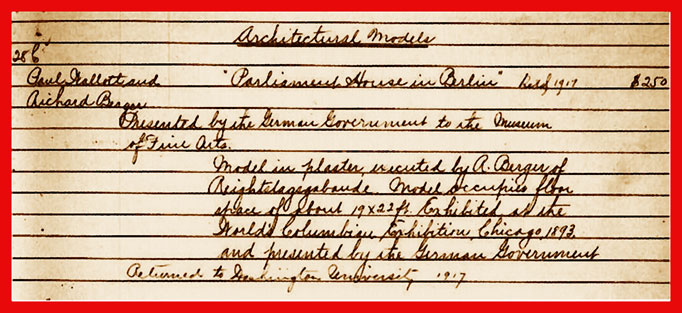 Architectural Models
28 C
Paul Wallott and "Parliament House in Berlin" Ret'd 1917 $250
Richard Berger
Presented by the German Government to the Museum
of Fine Arts.
Model in plaster, executed by A. Berger of
Model occupies floor
space of about 19x22 ft. Exhibited at the
World's Columbian Exhibition, Chicago, 1893
and presented by the German Government
Returned to Washington University 1917